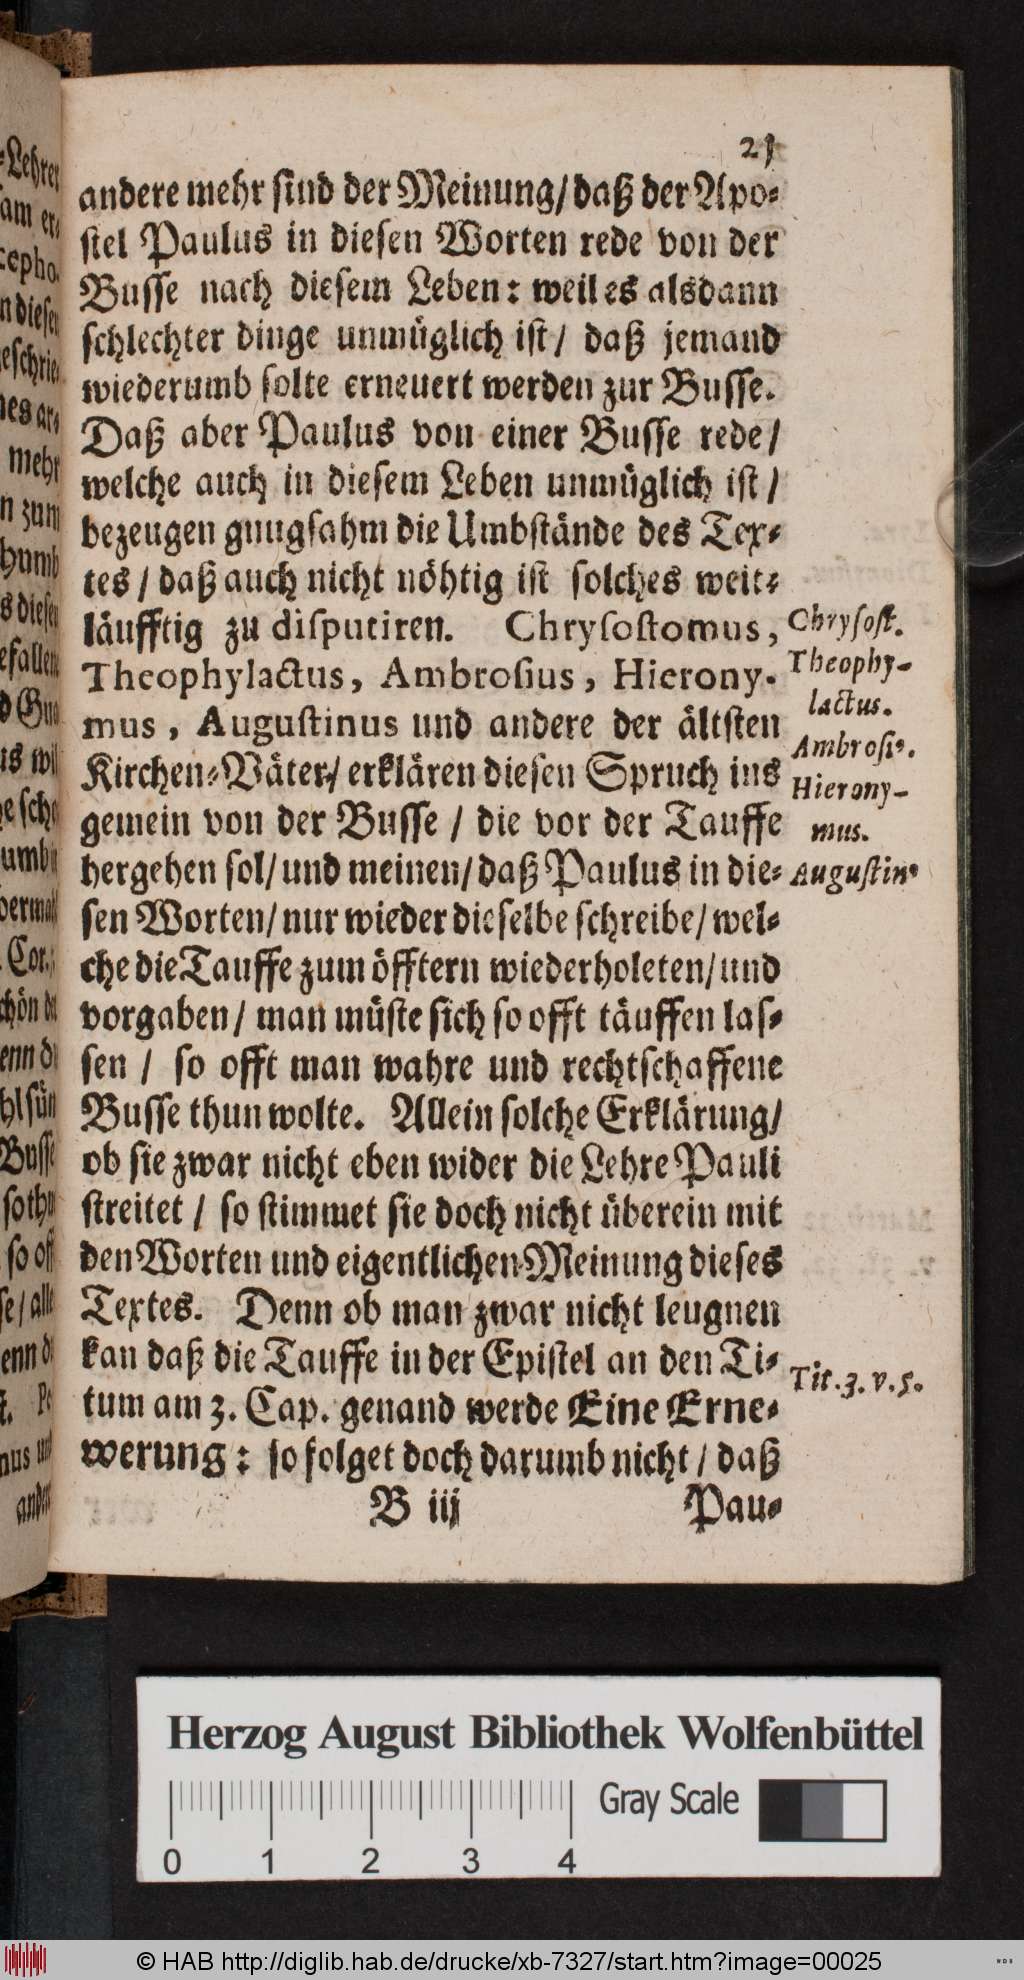 21
andere mehr sind der Meinung/ daß der Apo-
stel Paulus in diesen Worten rede von der
Busse nach diesem Leben: weil es alsdann
schlechter dinge unmüglich ist/ daß jemand
wiederumb solte erneuert werden zur Busse.
Daß aber Paulus von einer Busse rede/
welche auch in diesem Leben unmüglich ist/
bezeugen gnugsahm die Umbstände des Tex-
tes/ daß auch nicht nöhtig ist solches weit-
läufftig zu disputiren. Chrysostomus,
Theophylactus, Ambrosius, Hierony-
mus, Augustinus und andere der ältsten
Kirchen-Väter/ erklären diesen Spruch ins
gemein von der Busse/ die vor der Tauffe
hergehen sol/ und meinen/ daß Paulus in die-
sen Worten/ nur wieder dieselbe schreibe/ wel-
che die Tauffe zum öfftern wiederholeten/ und
vorgaben/ man müste sich so offt täuffen las-
sen/ so offt man wahre und rechtschaffene
Busse thun wolte. Allein solche Erklärung/
ob sie zwar nicht eben wider die Lehre Pauli
streitet/ so stimmet sie doch nicht überein mit
den Worten und eigentlichen Meinung dieses
Textes. Denn ob man zwar nicht leugnen
kan daß die Tauffe in der Epistel an den Ti-
tum am 3. Cap. genand werde Eine Erne-
werung: so folget doch darumb nicht/ daß
B iij Pau-
Chrysost.
Theophy-
lactus.
Ambrosiꝰ.
Hierony-
mus.
Augustinꝰ
Tit. 3. v. 5.
-Lehrer
am er-
cepho-
n diesen
eschrie-
nes ar-
mehr
n zum
humb
s diesen
efallen
us wil
umb
Cor.
chön
enn
Busse
so
so off
se/ alle
enn
nus und
ander
Herzog August Bibliothek Wolfenbüttel
Gray Scale
0 1 2 3 4
© HAB http://diglib.hab.de/drucke/xb-7327/start.htm?image=00025